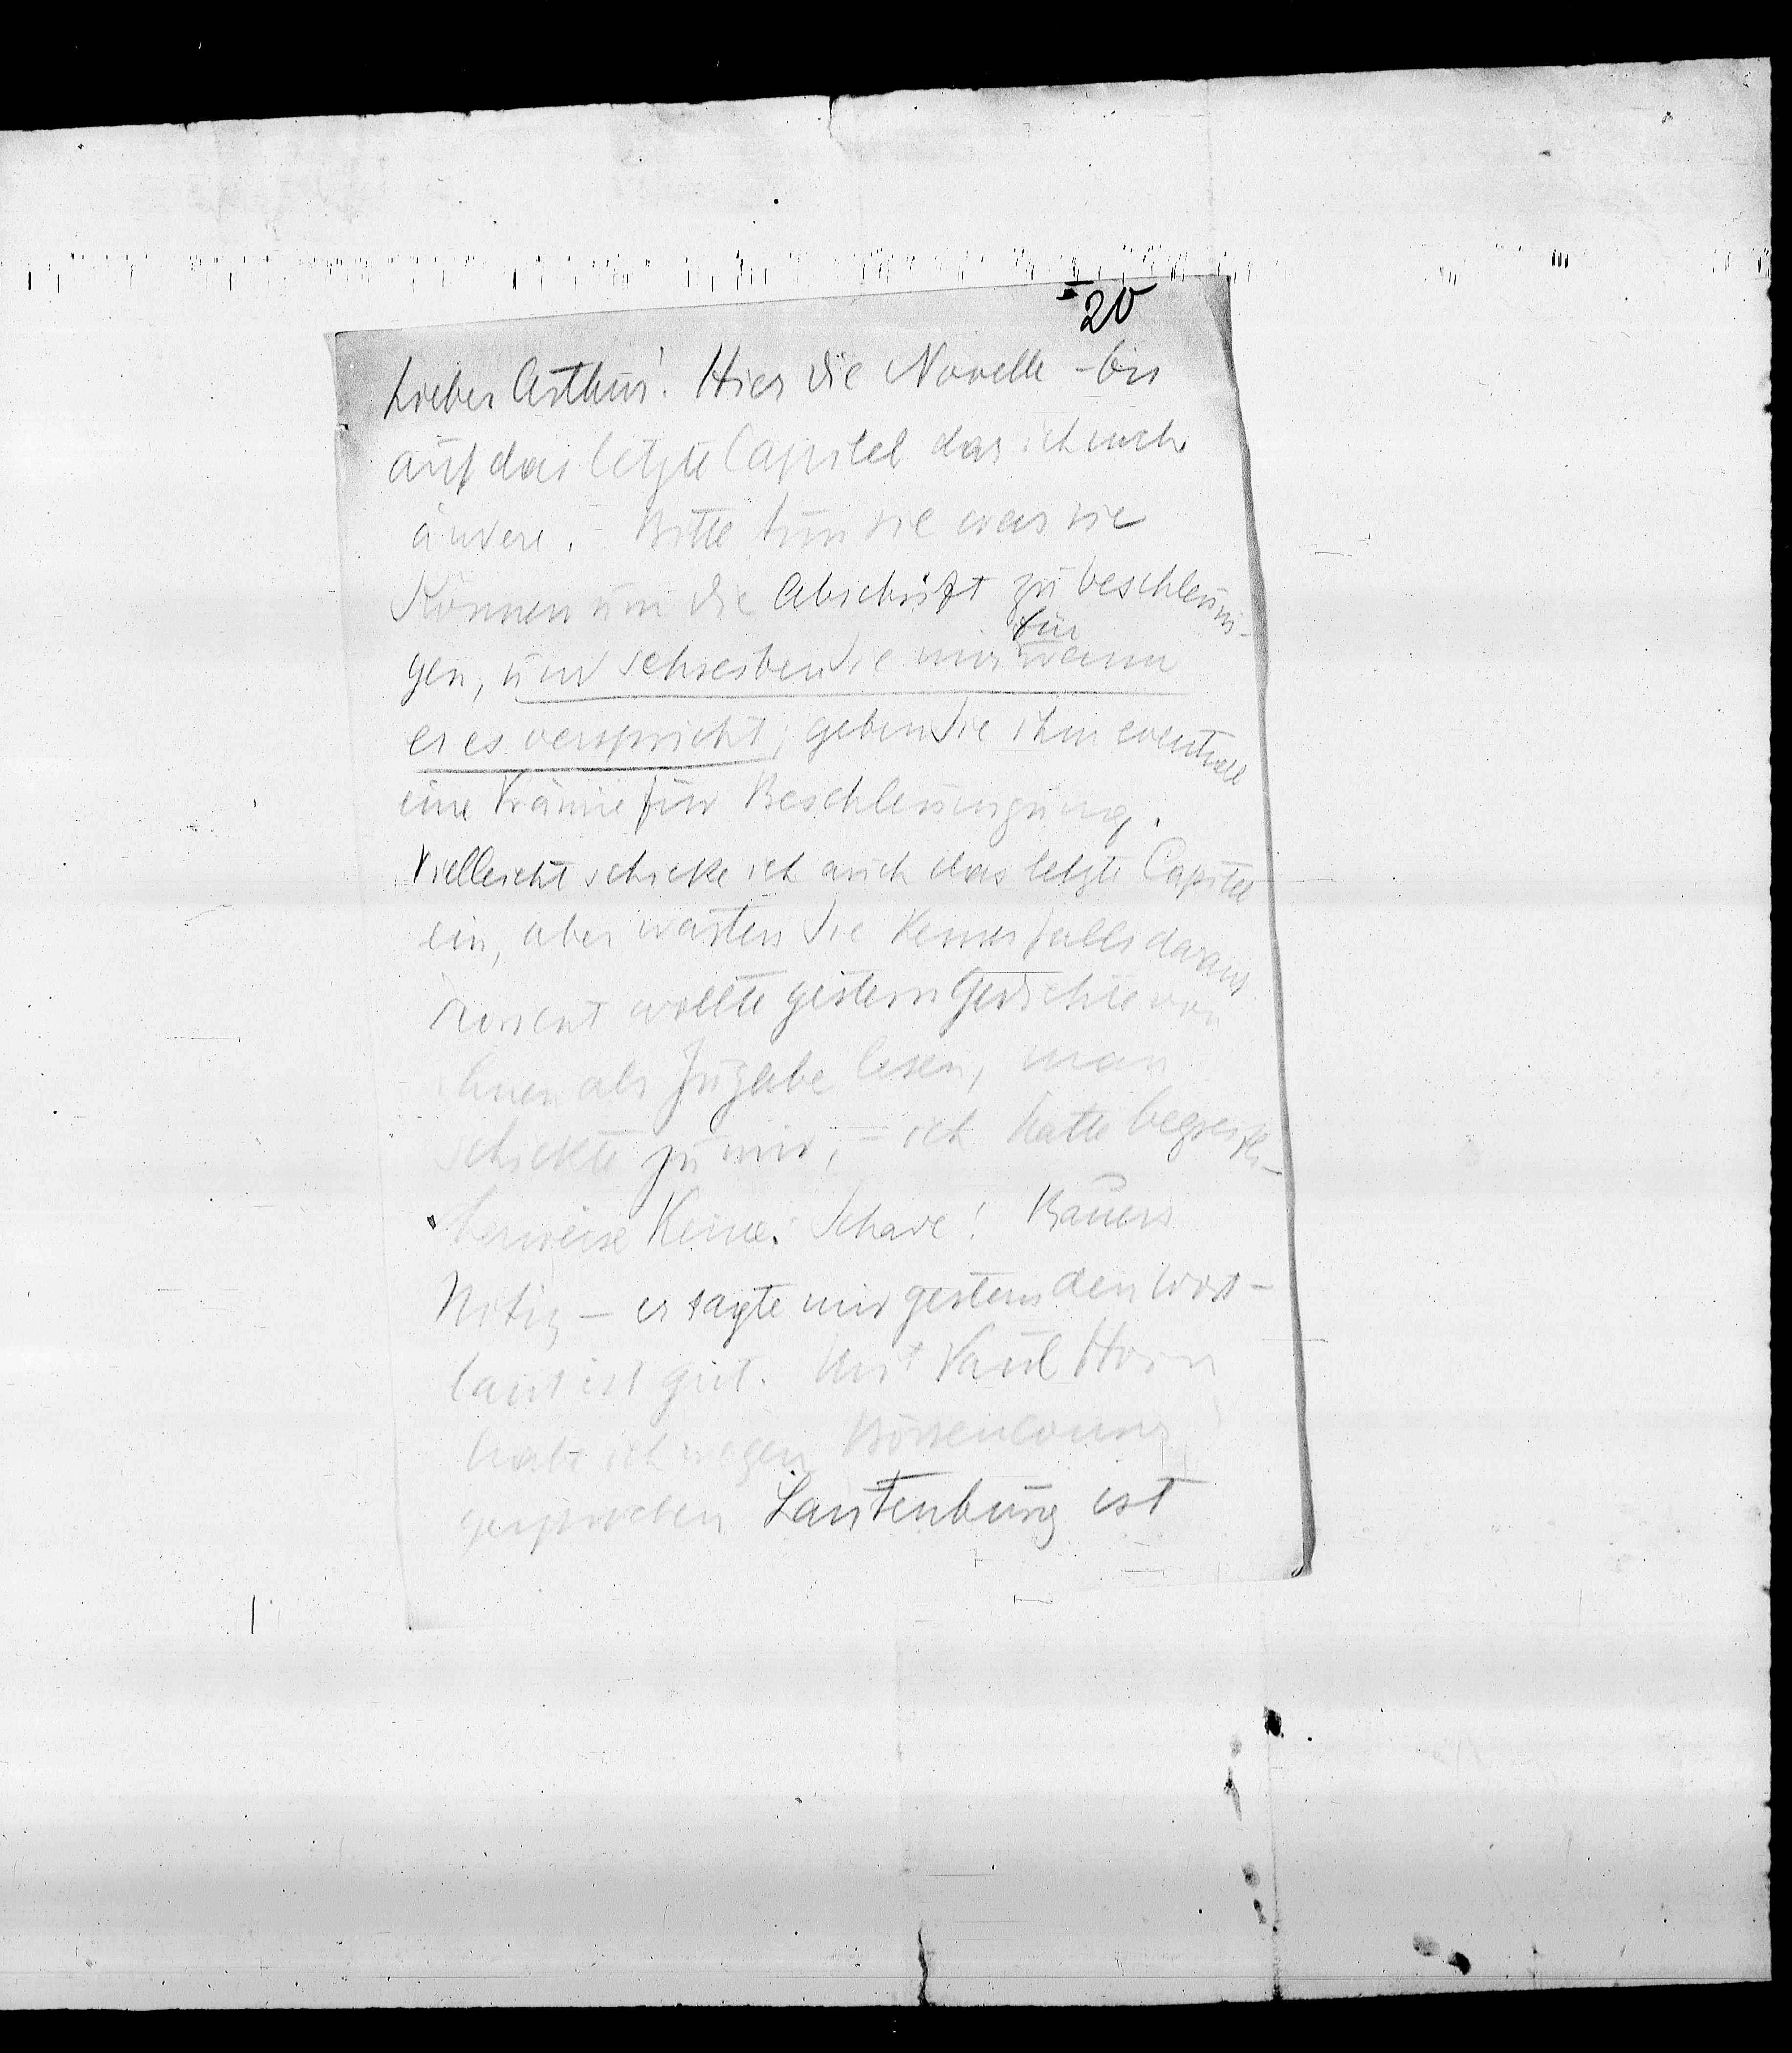 20
Lieber Arthur! Hier die Novelle – bis
auf das letzte Capitel das ich noch
ändere. – Bitte tun sie was sie
können um die Abschrift zu beschleuni-
für
gen, und schreiben Sie mir wann
er es verspricht; geben Sie ihm eventuell
eine Prämie für Beschleunigung.
Vielleicht schicke ich auch das letzte Capitel
ein, aber warten Sie keinesfalls darauf
wollte gestern Gedichte von
Ihnen als Zugabe lesen, man
schickte zu mir, – ich hatte begreifli-
cherweise keine. Schade! Bauers
Notiz – er sagte mir gestern den Wort-
laut ist gut. Mit Paul Horn
habe ich wegen
gesprochen Lautenburg ist